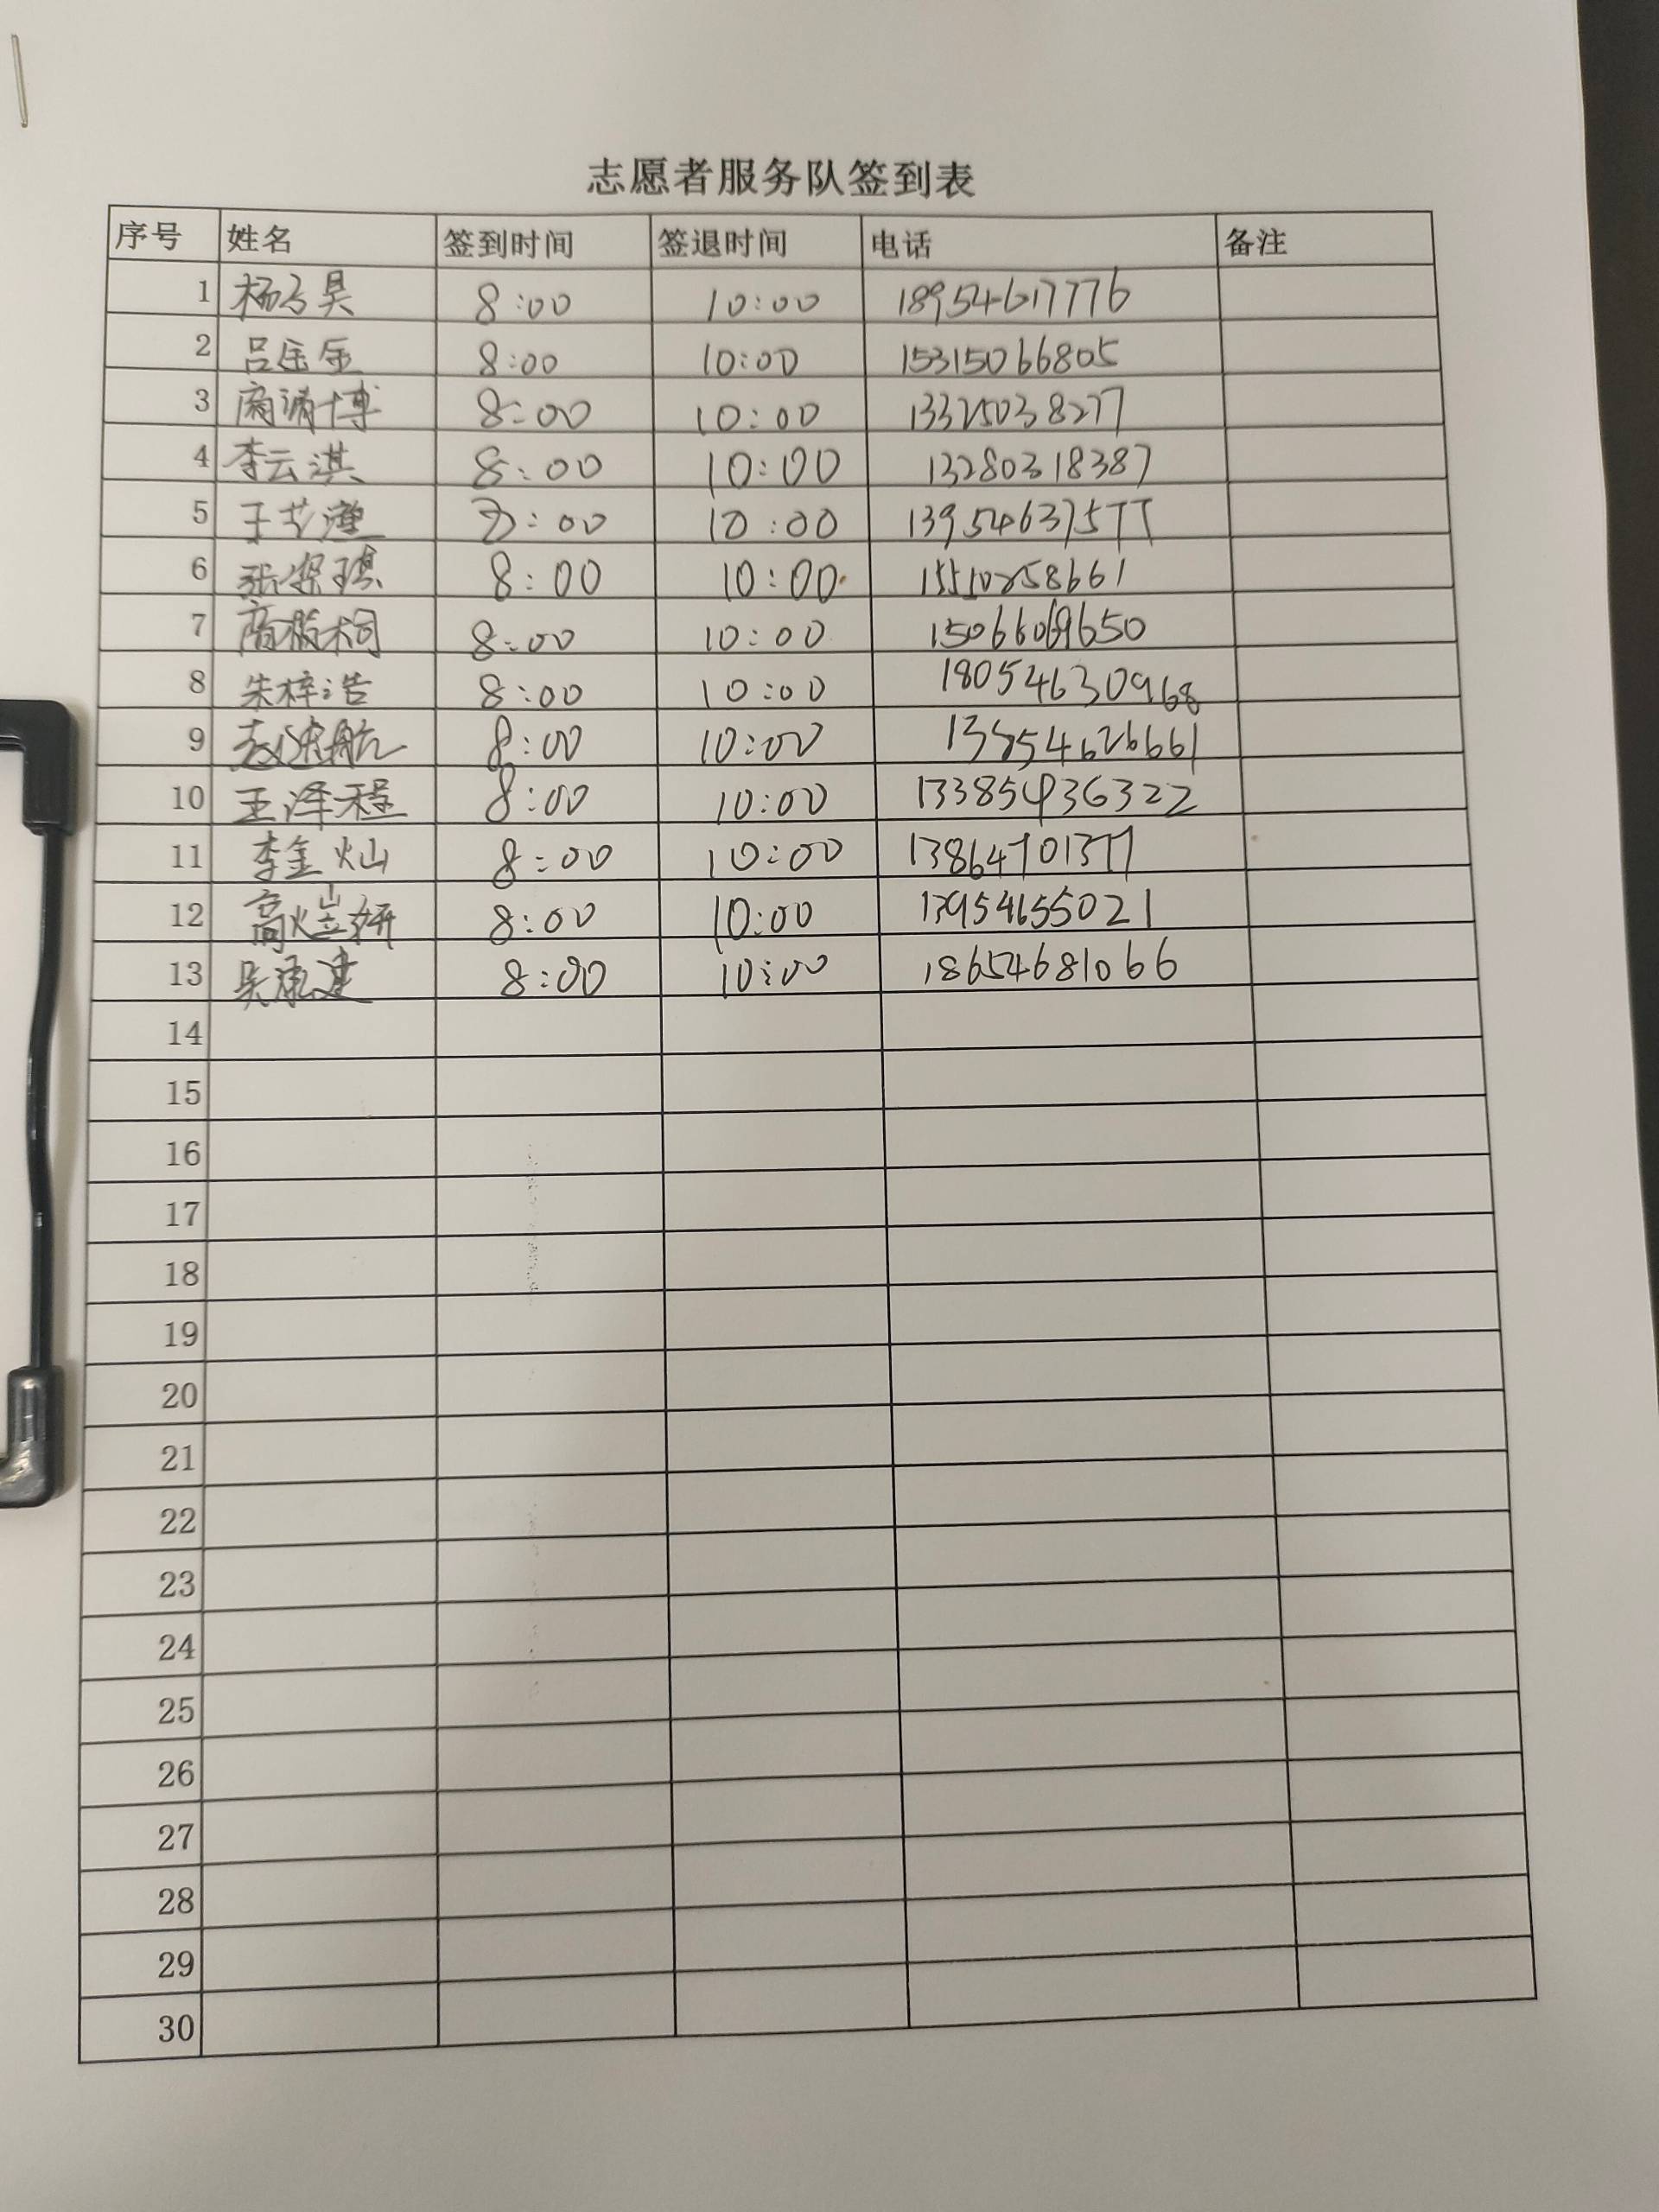 志愿者服务队签到表
序号 姓名 签到时间 签退时间 电话 备注
1 杨子昊 8:00 10:00 18954617776
2 吕金金 8:00 10:00 15315066805
3 8:00 10:00 13325038277
4 李云淇 8:00 10:00 13280318387
5 8:00 10:00 13954637577
6 8:00 10:00 15510258661
7 8:00 10:00
8 朱梓浩 8:00 10:00 18054630968
9 8:00 10:00 13854626661
10 王泽程 8:00 10:00 133854936322
11 李金灿 8:00 10:00 13864701377
12 8:00 10:00 13954655021
13 吴承建 8:00 10:00 18654681066
14
15
16
17
18
19
20
21
22
23
24
25
26
27
28
29
30